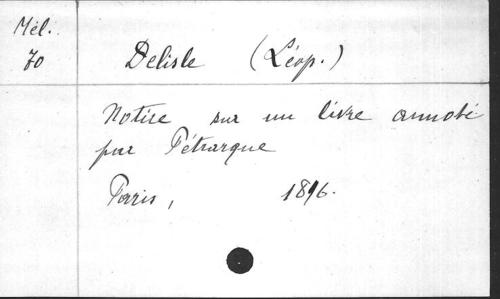 Mél.
70
Delisle (Léop.)
Notice sur un livre annoté
par Pétrarque
Paris, 1896.